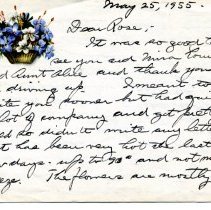 May 25, 1955.
Dear Rose,-
It was so good to
see you and Mira too
and Aunt Alice and thank you
driving up. I meant to
you sooner but had qui
lot of company and get
so didn't write any lette
It has been very hot the last
days - up to 90° and not m
The flowers are mostly